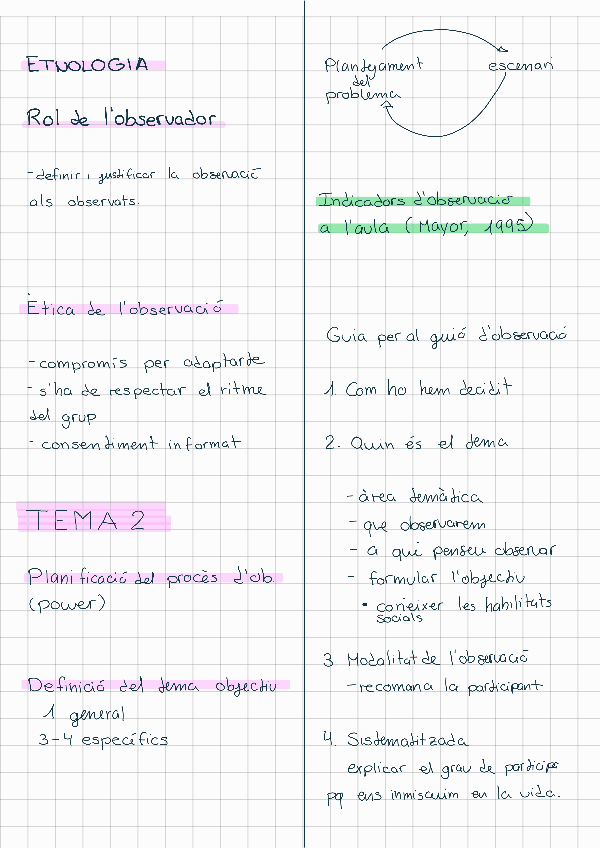 ETNOLOGIA
Rol de l'observador
- definir i justificar la observació
als observats.
Ètica de l'observació
- compromís per adaptarde
- s'ha de respectar el ritme
del grup
- consentiment informat
TEMA 2
Planificació del procès d'ob.
(power)
Definició del tema objectiu
1 general
3-4 específics
Plantejament
del
problema
escenari
Indicadors d'observació
a l'aula (Mayor, 1995)
Guia per al guió d'observació
1. Com ho hem decidit
2. Quin és el tema
- àrea temàtica
- que observarem
- a qui penseu observar
- formular l'objectiu
• conèixer les habilitats
socials
3 Modalitat de l'observació
- recomana la participant
4. Sistematitzada
explicar el grau de particip
pq ens inmiscuim en la vida.